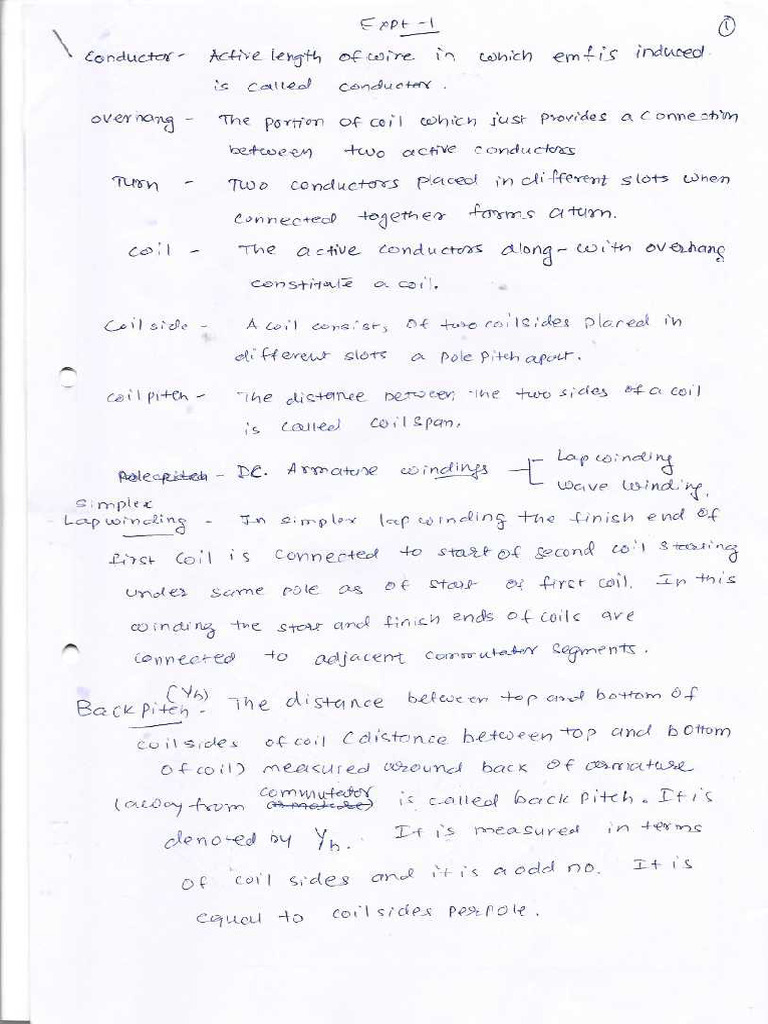 Expt-1
①
Conductor - Active length of wire in which emf is induced
is called conductor.
Overhang - The portion of coil which just provides a connection
between two active conductors
Turn - Two conductors placed in different slots when
connected together forms a turn.
Coil - The active conductors along-with overhang
constitute a coil.
Coil side - A coil consists of two coilsides placed in
different slots a pole pitch apart.
Coil pitch - The distance between the two sides of a coil
is called coil span.
Pole pitch - DC. Armature windings - Lap winding
Wave winding.
Simplex
Lap winding - In simplex lap winding the finish end of
first coil is connected to start of second coil starting
under same pole as of start of first coil. In this
winding the start and finish ends of coils are
connected to adjacent commutator segments.
(Yb)
Back pitch - The distance between top and bottom of
coilsides of coil (distance between top and bottom
of coil) measured around back of armature
commutator
(away from armature) is called back pitch. It is
denoted by Yb. It is measured in terms
of coil sides and it is a odd no. It is
equal to coilsides per pole.